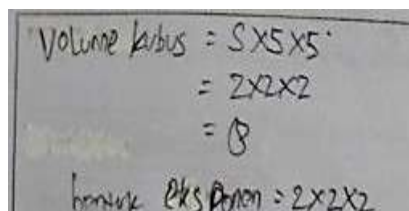 Volume kubus = S×S×S
= 2×2×2
= 8
bentuk eksponen = 2×2×2